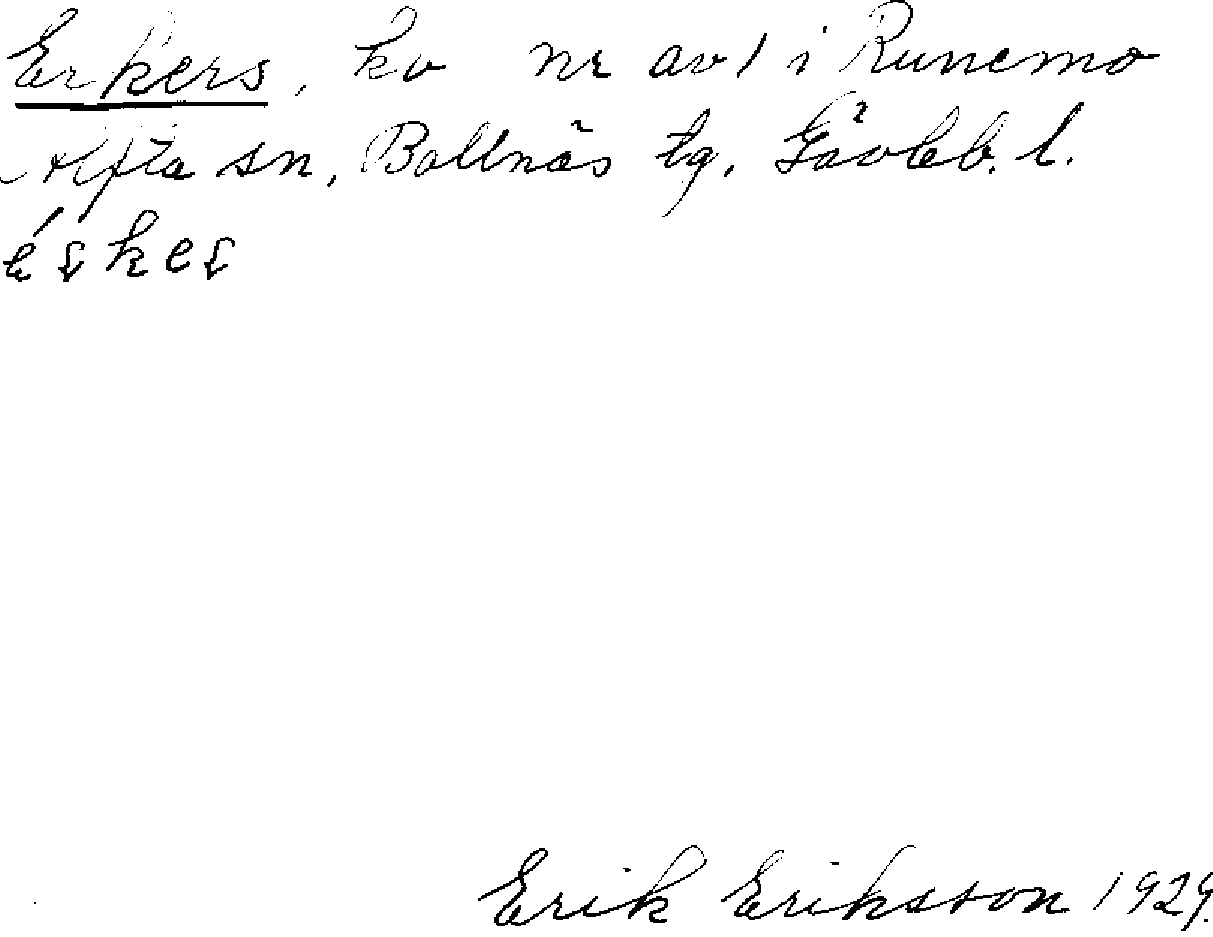 Erkers, kv nr av 1 i Runemo
Alfta sn, Bollnäs tg, Gävleb. l.
Erik Eriksson 1929.